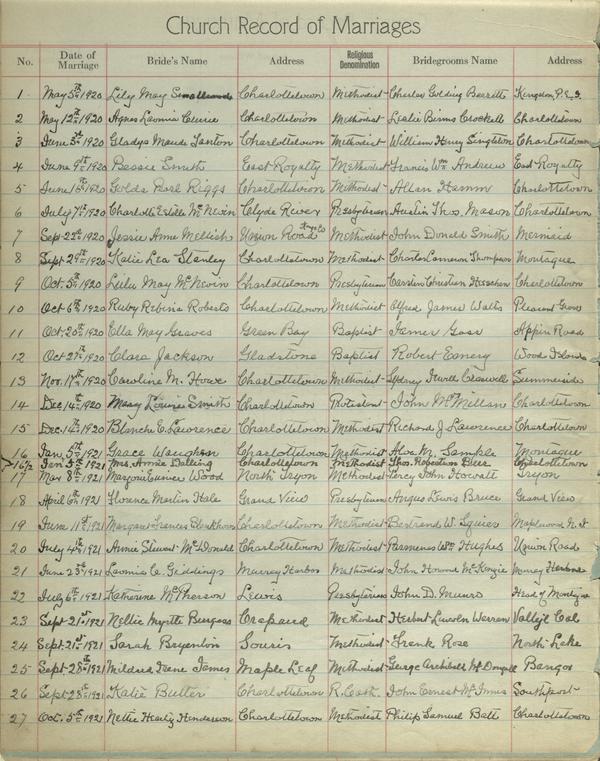 Church Record of Marriages
No. Date of Marriage Bride's Name Address Religious Denomination Bridegrooms Name Address
1 May 5th 1920 Lily May Smallwood Charlottetown Methodist Charles Golding Barrett Kingston P.E.I.
2 May 12th 1920 Agnes Leonia Currie Charlottetown Methodist Leslie Binns Crockett Charlottetown
3 June 3rd 1920 Gladys Maude Tanton Charlottetown Methodist William Henry Singleton Charlottetown
4 June 9th 1920 Bessie Smith East Royalty Methodist Francis Wm Andrew East Royalty
5 June 1920 Golda Pearl Riggs Charlottetown Methodist Allan Hamm Charlottetown
6 July 7th 1920 Charlotte Estelle McNevin Clyde River Presbyterian Austin Thos. Mason Charlottetown
7 Sept 22nd 1920 Jessie Anne Mellish Union Road Methodist John Donald Smith Mermaid
8 Sept 29th 1920 Katie Lea Stanley Charlottetown Methodist Charles Cameron Thompson Montague
9 Oct. 5th 1920 Leila May McNevin Charlottetown Presbyterian Carsten Christian Charlottetown
10 Oct 6th 1920 Ruby Rebina Roberts Charlottetown Methodist Alfred James Watts Pleasant Grove
11 Oct. 20th 1920 Ella May Graves Green Bay Baptist James Goss Appin Road
12 Oct 27th 1920 Clara Jackson Gladstone Baptist Robert Emery Wood Islands
13 Nov. 17th 1920 Caroline M. Howe Charlottetown Methodist Sydney Craswell Summerside
14 Dec. 14th 1920 Mary Louise Smith Charlottetown Protestant John McMillan Charlottetown
15 Dec. 1920 Blanche E. Lawrence Charlottetown Methodist Richard J Lawrence Charlottetown
16 Jan. 5th 1921 Grace Vaughan Charlottetown Methodist M. Semple Montague
16½ Jan 5th 1921 Mrs. Annie Dalling Charlottetown Methodist Thos. Robertson Charlottetown
17 Mar 8th 1921 Marjorie Wood North Tryon Methodist Percy John Howatt Tryon
18 April 1921 Florence Merlin Hale Grand View Presbyterian Angus Lewis Bruce Grand View
19 June 11th 1921 Margaret Frances Charlottetown Methodist Bertrand W. Squires Maplewood
20 July 1921 Annie Stewart McDonald Charlottetown Methodist Parmenas Wm Hughes Union Road
21 June 23rd 1921 Leonia C. Giddings Murray Harbor Methodist John Howard McKenzie Murray Harbor
22 July 6th 1921 Katherine McPherson Lewis Presbyterian John D. Munro Head of Montague
23 Sept 21st 1921 Nellie Myrtle Burgess Crapaud Methodist Herbert Lincoln Warren Vallejo Cal
24 Sept. 21st 1921 Sarah Bryenton Souris Methodist Frank Rose North Lake
25 Sept. 28th 1921 Mildred Irene James Maple Leaf Methodist George Archibald McDougall Bangor
26 Sept 28th 1921 Katie Butler Charlottetown R. Cath. John Ernest McInnis Southport
27 Oct. 5th 1921 Nettie Henderson Charlottetown Methodist Philip Samuel Batt Charlottetown